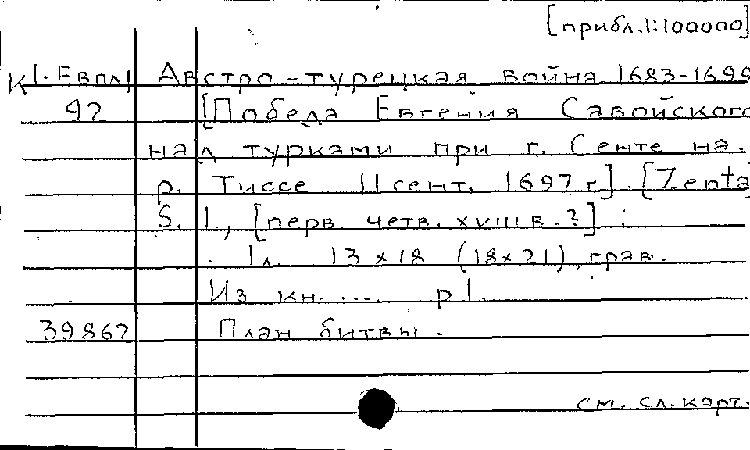 [прибл. 1:100000]
К 1. Евпл Австро-турецкая война 1683-1699
92 [Победа Евгения Савойского
над турками при г. Сенте на.
р. Тиссе 11 сент. 1697 г.] [Zenta
S. l., [перв. четв. XVIII в. ?] :
1 л. 13 x 18 (18 x 21), грав.
Из кн. .... p. l
39867 План битвы.
см. сл. карт.